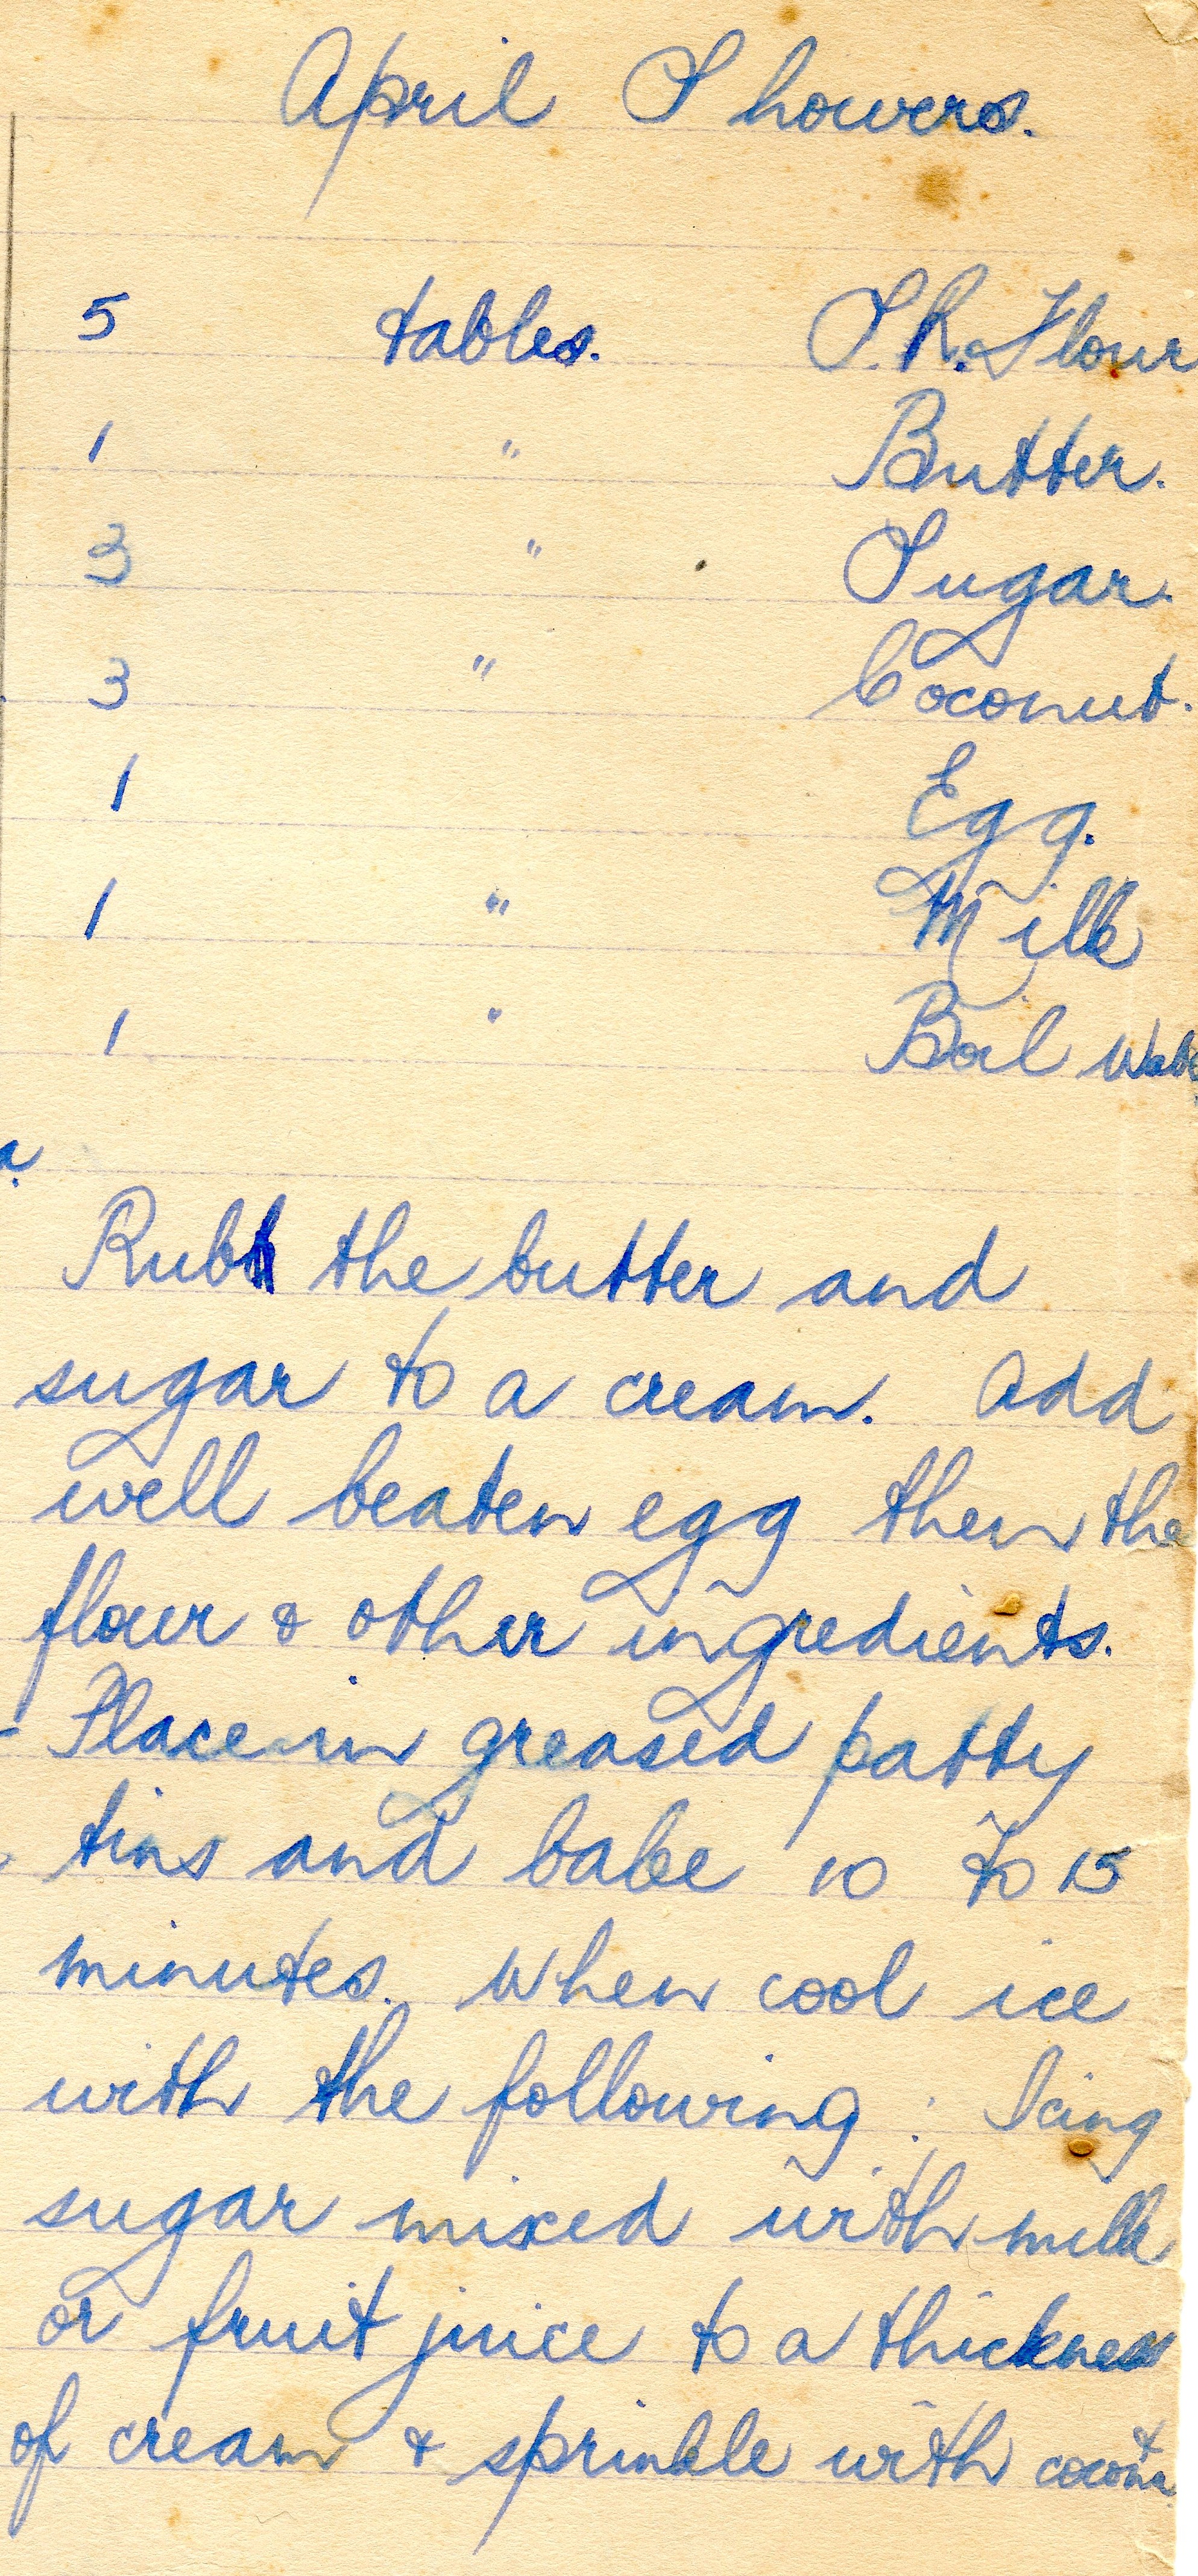 April Showers.
5 tables. S.R. Flour
1 " Butter.
3 " Sugar.
3 " Coconut.
1 Egg.
1 " Milk
1 " Boil Wate
Rub the butter and
sugar to a cream. Add
well beaten egg then the
flour & other ingredients.
Place in greased patty
tins and bake 10 to 15
minutes. When cool ice
with the following: Icing
sugar mixed with milk
or fruit juice to a thickness
of cream & sprinkle with coconut